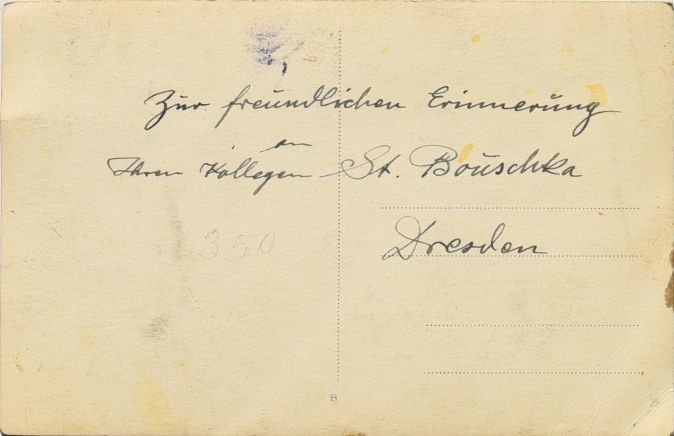 Zur freundlichen Erinnerung
an
Ihren Kollegen St. Bouschka
Dresden
350
B